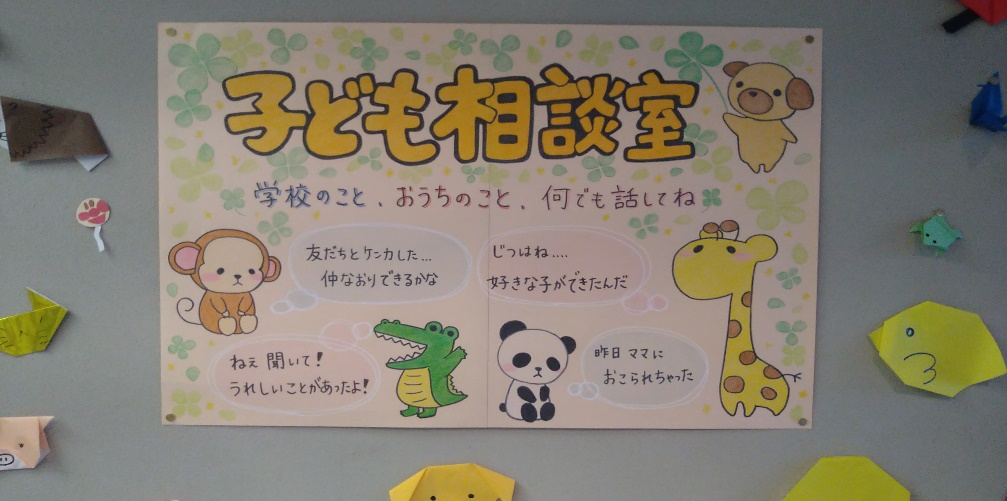 子ども相談室
学校のこと、おうちのこと、何でも話してね
友だちとケンカした…
仲なおりできるかな
じつはね….
好きな子ができたんだ
ねぇ 聞いて!
うれしいことがあったよ!
昨日 ママに
おこられちゃった